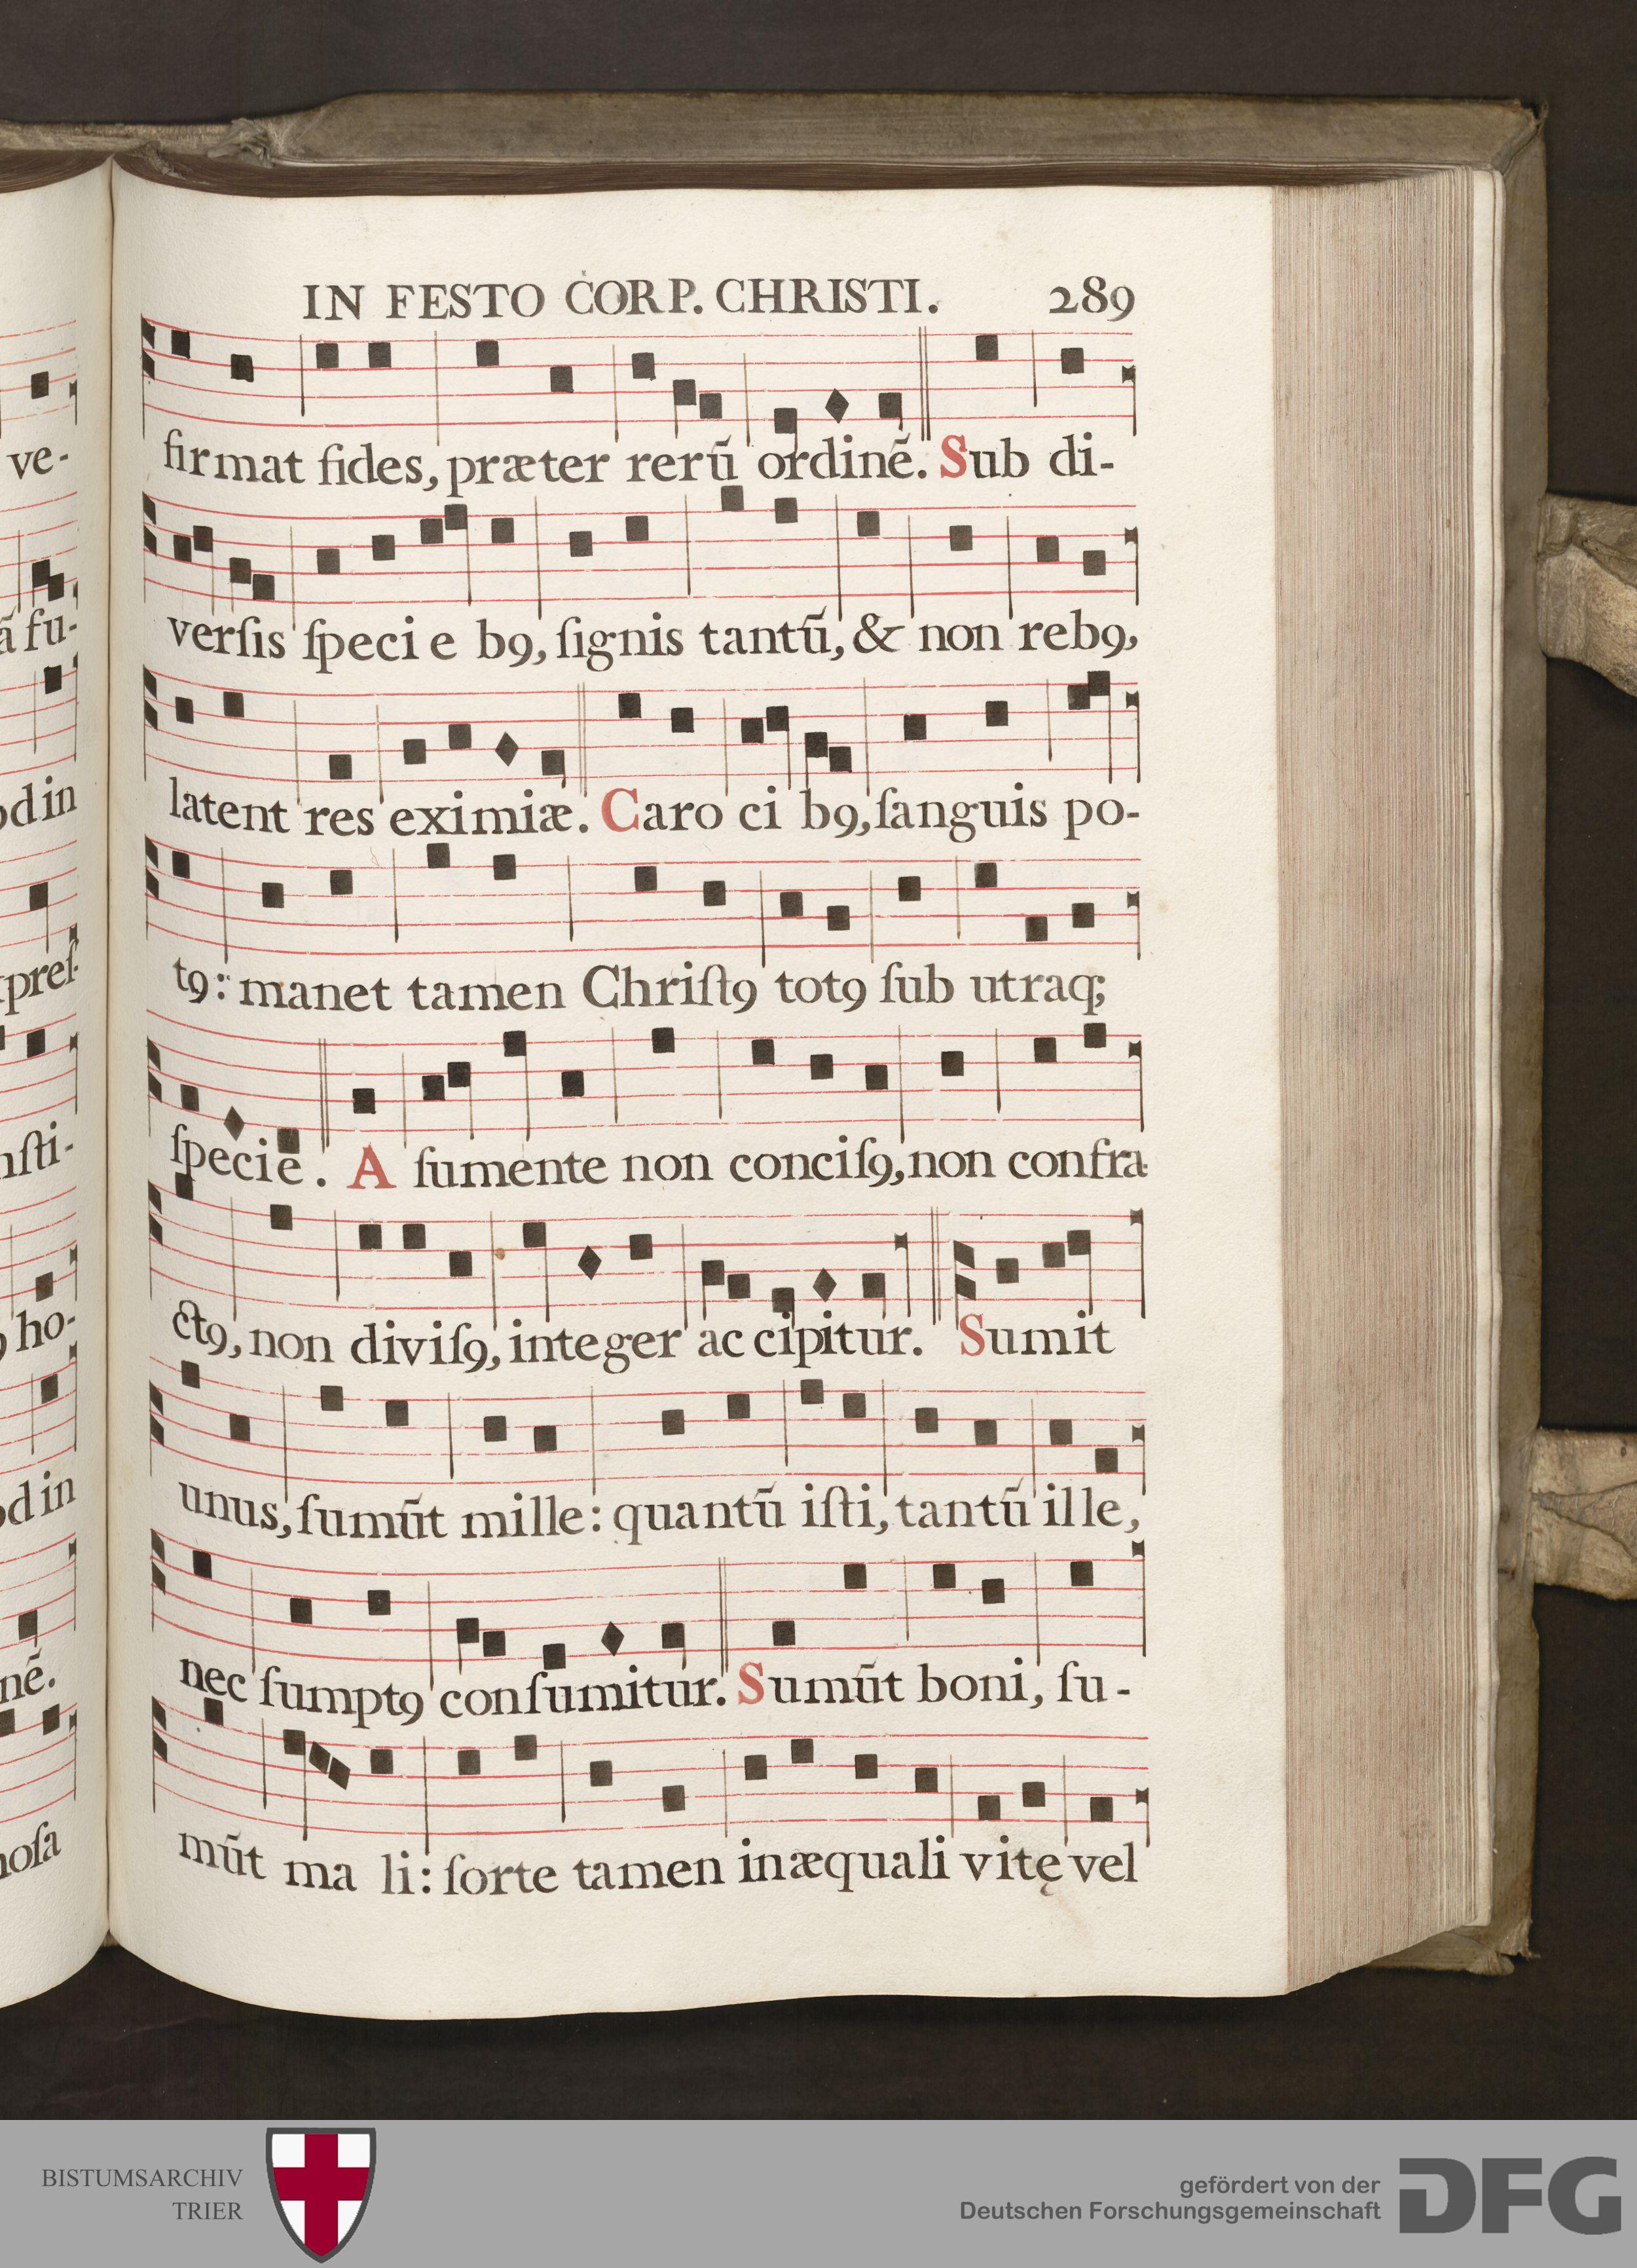 IN FESTO CORP. CHRISTI. 289
firmat fides, præter rerũ ordinẽ. Sub di-
verſis ſpeci e bꝯ, ſignis tantũ, & non rebꝯ,
latent res eximiæ. Caro ci bꝯ, ſanguis po-
tꝯ: manet tamen Chriſtꝯ totꝯ ſub utraq;
ſpecie. A ſumente non conciſꝯ, non confra-
ctꝯ, non diviſꝯ, integer ac cipitur. Sumit
unus, ſumũt mille: quantũ iſti, tantũ ille,
nec ſumptꝯ conſumitur. Sumũt boni, ſu-
mũt ma li: ſorte tamen inæquali vitę vel
ve-
ã fu-
od in
preſ-
nſti-
ho-
od in
nẽ.
noſa
BISTUMSARCHIV
TRIER
gefördert von der
Deutschen Forschungsgemeinschaft
DFG